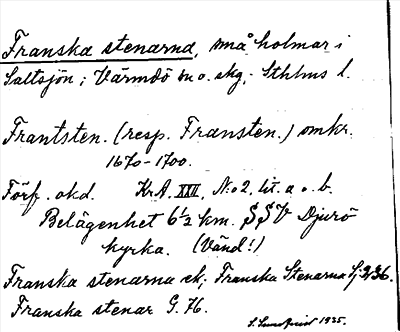 Franska stenarna, små holmar i
Saltsjön; Värmdö sn o. skg, Sthlms l.
Frantsten. (resp. Fransten.) omkr.
1670-1700.
Förf. okd. KrA. XXII, N:o 2, lit. a o. b.
Belägenhet 6½ km. SSV Djurö
kyrka. (Vänd!)
Franska stenarna ek; Franska Stenarna Sj: 236.
Franska stenar G. 76.
1935.